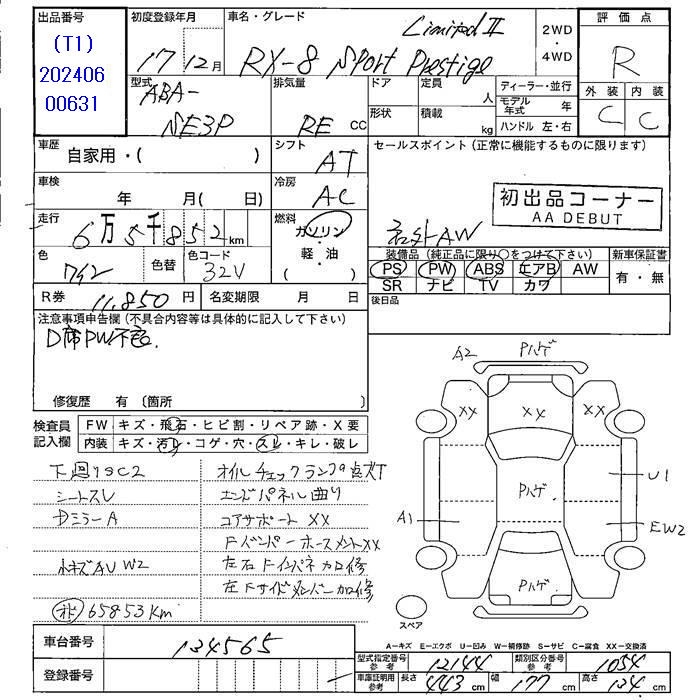 出品番号
(T1)
202406
00631
初度登録年月
17年12月
車名・グレード
Limited II
RX-8 Sport Prestige
2WD
・
4WD
評価点
R
外装 内装
C C
型式
ABA-
SE3P
排気量
RE cc
ドア
定員
人
形状
積載
kg
ディーラー・並行
モデル年式 年
ハンドル 左・右
車歴
自家用・( )
シフト
AT
車検
年 月( 日)
冷房
AC
走行
6万5千852km
燃料
ガソリン
・
軽・油
色
ワイン
色替
色コード
32V
R券 11,850円
名変期限 月 日
セールスポイント(正常に機能するものに限ります)
初出品コーナー
AA DEBUT
社外AW
装備品(純正品に限り〇をつけて下さい)
PS PW ABS エアB AW
SR ナビ TV カワ
新車保証書
有・無
後日品
注意事項申告欄(不具合内容等は具体的に記入して下さい)
D席PW不良.
修復歴 有(箇所
検査員
記入欄
FW キズ・飛石・ヒビ割・リペア跡・X要
内装 キズ・汚れ・コゲ・穴・スレ・キレ・破レ
下廻りSC2
シートスレ
Dミラー A
小キズAU W2
オド 65853Km
オイルチェックランプ点灯
エンドパネル曲り
コアサポート XX
Fバンパーホースメント XX
左右Fインパネ加修
左Fサイドメンバー加修
A2
Pハゲ
XX
XX
XX
Pハゲ
A1
U1
EW2
Pハゲ
スペア
A-キズ E-エクボ U-凹み W-補修跡 S-サビ C-腐食 XX-交換済
車台番号 134565
登録番号
型式指定番号 参考 12144
類別区分番号 参考 1054
車庫証明用 参考 長さ 443cm 幅 177cm 高さ 134cm